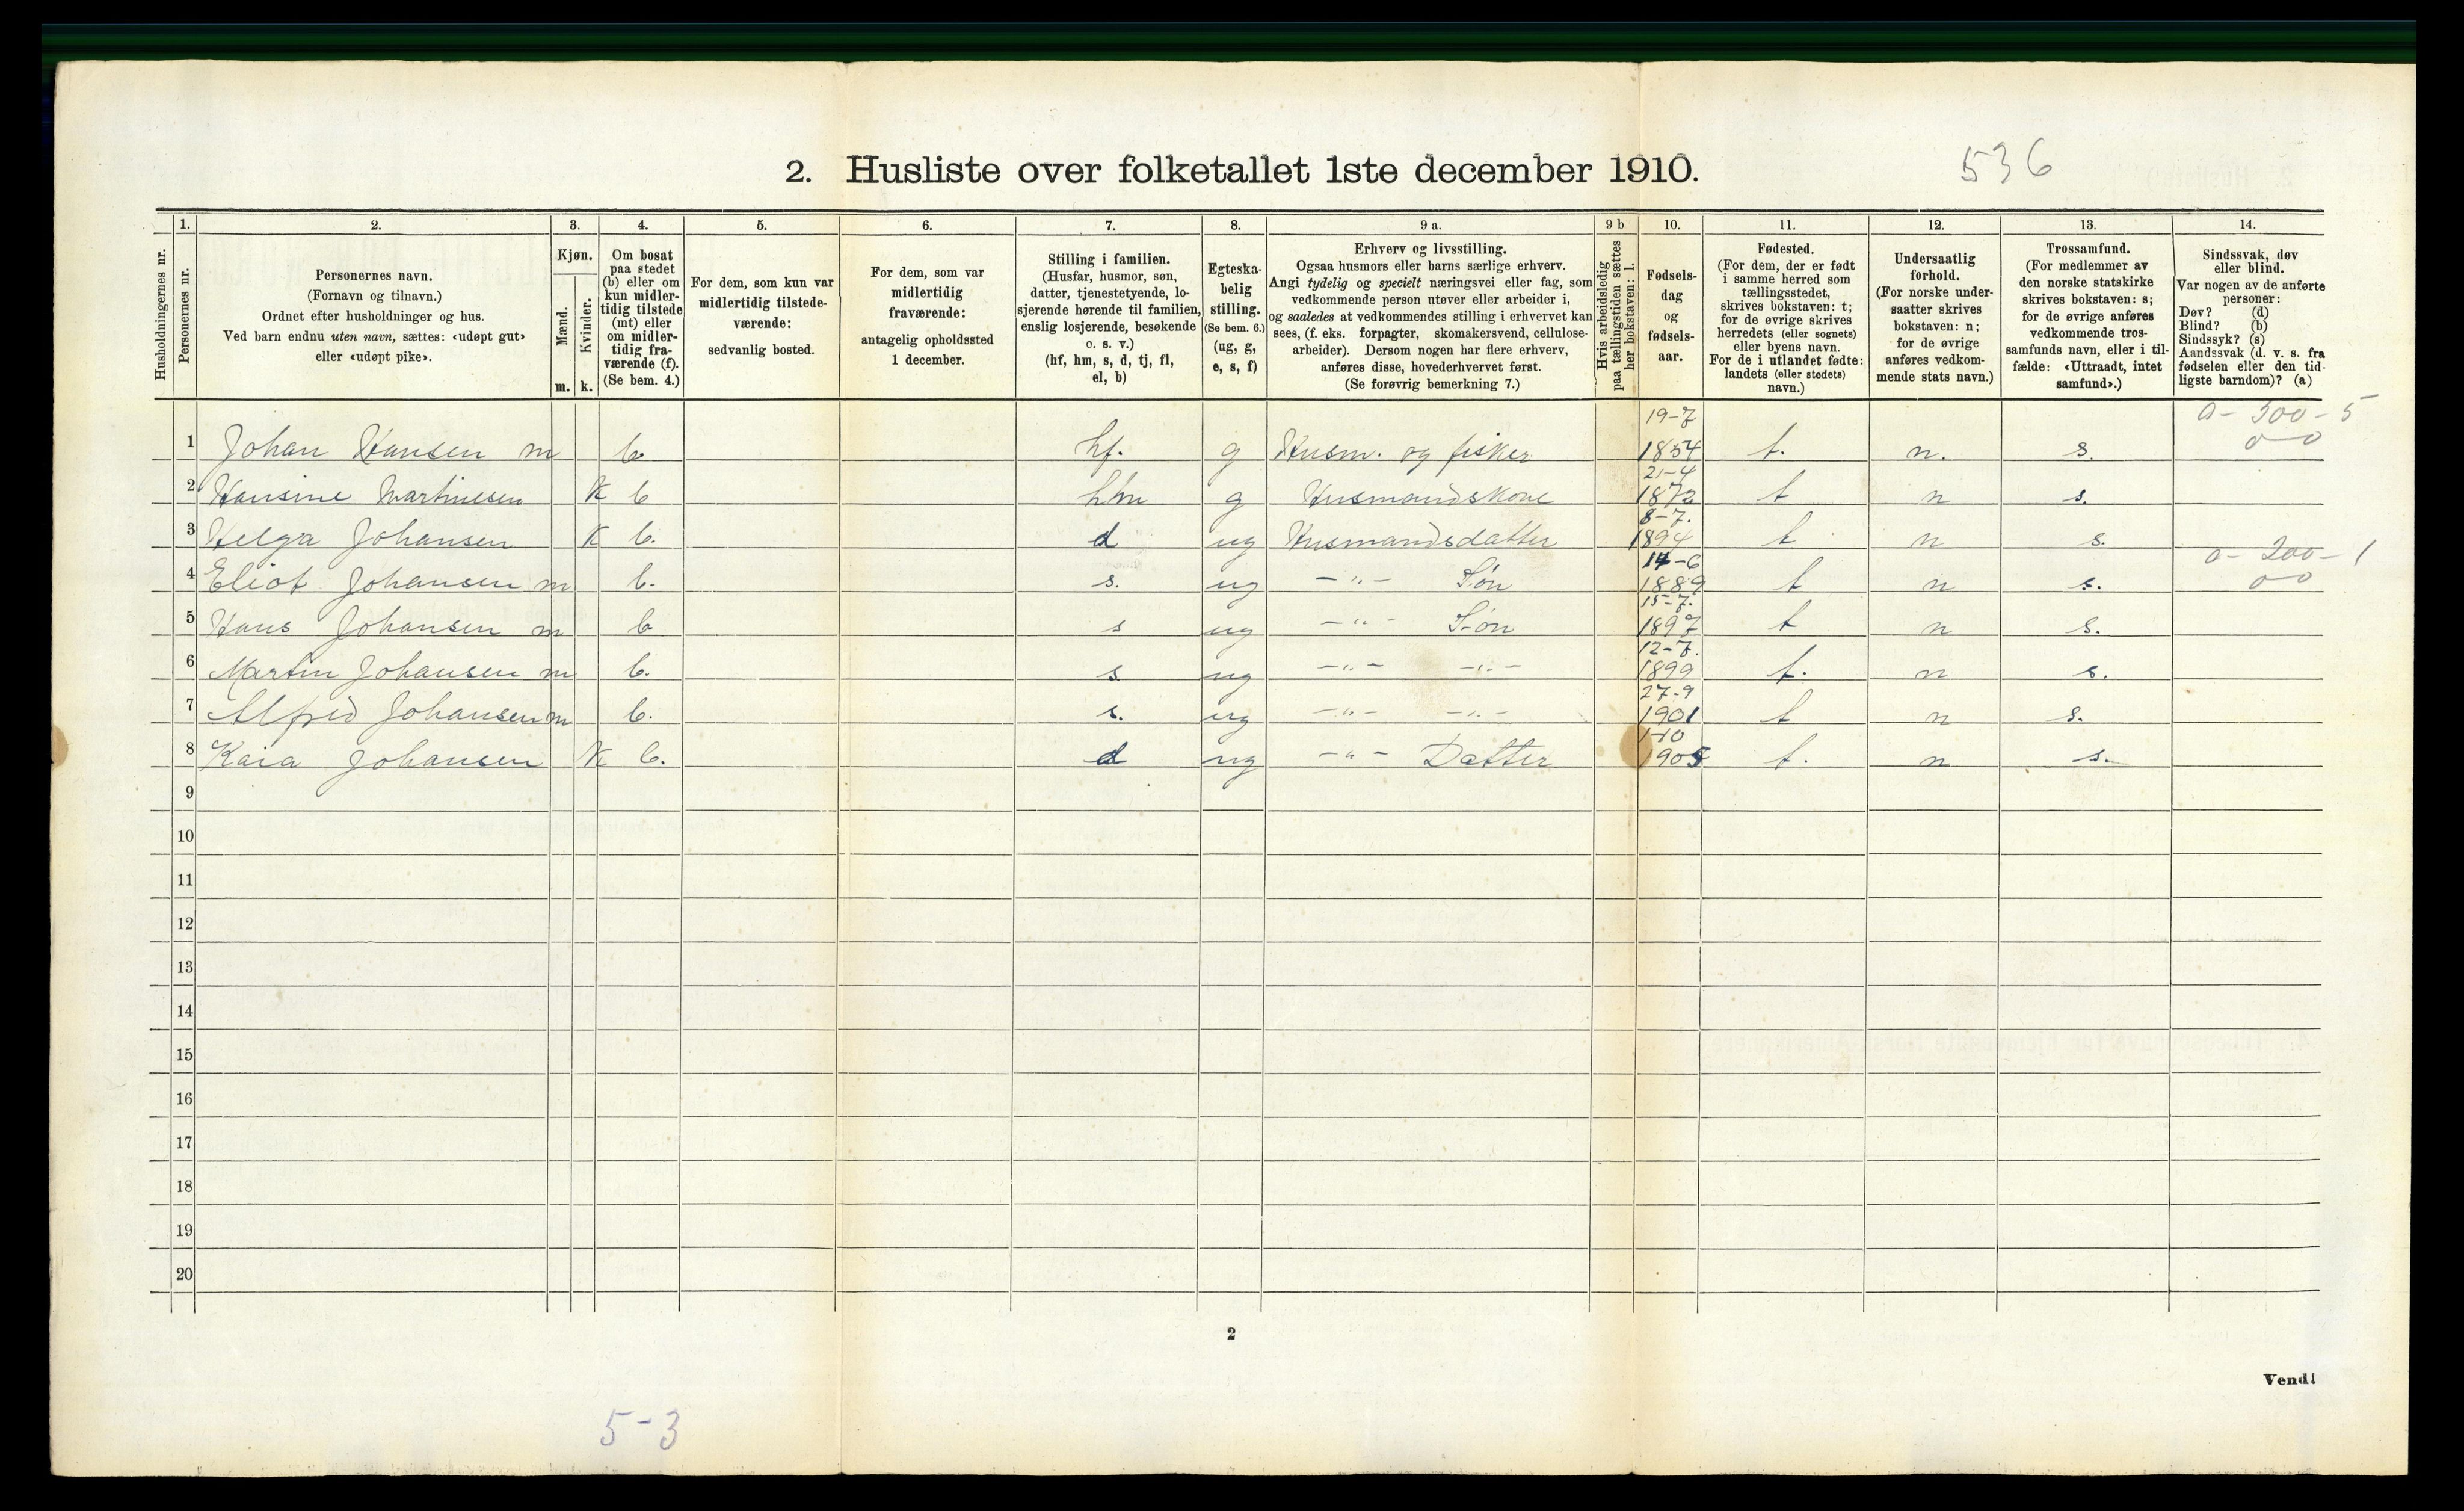 2. Husliste over folketallet 1ste december 1910.
536
Husholdningernes nr.
1.
Personernes nr.
2.
Personernes navn.
(Fornavn og tilnavn.)
Ordnet efter husholdninger og hus.
Ved barn endnu uten navn, sættes: «udøpt gut»
eller «udøpt pike».
3.
Kjøn.
Mænd.
Kvinder.
m. k.
4.
Om bosat
paa stedet
(b) eller om
kun midler-
tidig tilstede
(mt) eller
om midler-
tidig fra-
værende (f).
(Se bem. 4.)
5.
For dem, som kun var
midlertidig tilstede-
værende:
sedvanlig bosted.
6.
For dem, som var
midlertidig
fraværende:
antagelig opholdssted
1 december.
7.
Stilling i familien.
(Husfar, husmor, søn,
datter, tjenestetyende, lo-
sjerende hørende til familien,
enslig losjerende, besøkende
o. s. v.)
(hf, hm, s, d, tj, fl,
el, b)
8.
Egteska-
belig
stilling.
(Se bem. 6.)
(ug, g,
e, s, f)
9 a.
Erhverv og livsstilling.
Ogsaa husmors eller barns særlige erhverv.
Angi tydelig og specielt næringsvei eller fag, som
vedkommende person utøver eller arbeider i,
og saaledes at vedkommendes stilling i erhvervet kan
sees, (f. eks. forpagter, skomakersvend, cellulose-
arbeider). Dersom nogen har flere erhverv,
anføres disse, hovederhvervet først.
(Se forøvrig bemerkning 7.)
9 b
Hvis arbeidsledig
paa tællingstiden sættes
her bokstaven: l.
10.
Fødsels-
dag
og
fødsels-
aar.
11.
Fødested.
(For dem, der er født
i samme herred som
tællingsstedet,
skrives bokstaven: t;
for de øvrige skrives
herredets (eller sognets)
eller byens navn.
For de i utlandet fødte:
landets (eller stedets)
navn.)
12.
Undersaatlig
forhold.
(For norske under-
saatter skrives
bokstaven: n;
for de øvrige
anføres vedkom-
mende stats navn.)
13.
Trossamfund.
(For medlemmer av
den norske statskirke
skrives bokstaven: s;
for de øvrige anføres
vedkommende tros-
samfunds navn, eller i til-
fælde: «Uttraadt, intet
samfund».)
14.
Sindssvak, døv
eller blind.
Var nogen av de anførte
personer:
Døv? (d)
Blind? (b)
Sindssyk? (s)
Aandssvak (d. v. s. fra
fødselen eller den tid-
ligste barndom)? (a)
19-7 0- 300- 5
1 Johan Hansen m b hf. g Husm. og fisker 1854 t. n. s. 0-0
21-4
2 Hansine Martinesen K b hm g Husmandskone 1872 t n s.
8-7.
3 Helga Johansen K b. d ug Husmandsdatter 1894 t n s.
14-6 0- 200- 1
4 Eliot Johansen m b. s. ug -"- Søn 1889 t n s. 00
15-7.
5 Hans Johansen m b s ug -"- Søn 1897 t n s.
12-7.
6 Martin Johansen m b. s. ug -"- -"- 1899 t. n s.
27-9
7 Alfred Johansen m b. s. ug -"- -"- 1901 t n s.
1-10
8 Kaia Johansen K b. d ug -"- Datter 1905 t. n s.
9
10
11
12
13
14
15
16
17
18
19
20
2
Vend!
5-3